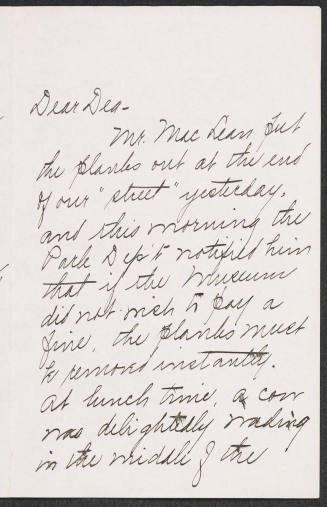 Dear Dea-
Mr. Mac Lean put
the planks out at the end
of our "street" yesterday,
and this morning the
Park Dep't notified him
that if the Museum
did not wish to pay a
fine, the planks must
be removed instantly.
At lunch time, a cow
was delightedly wading
in the middle of the